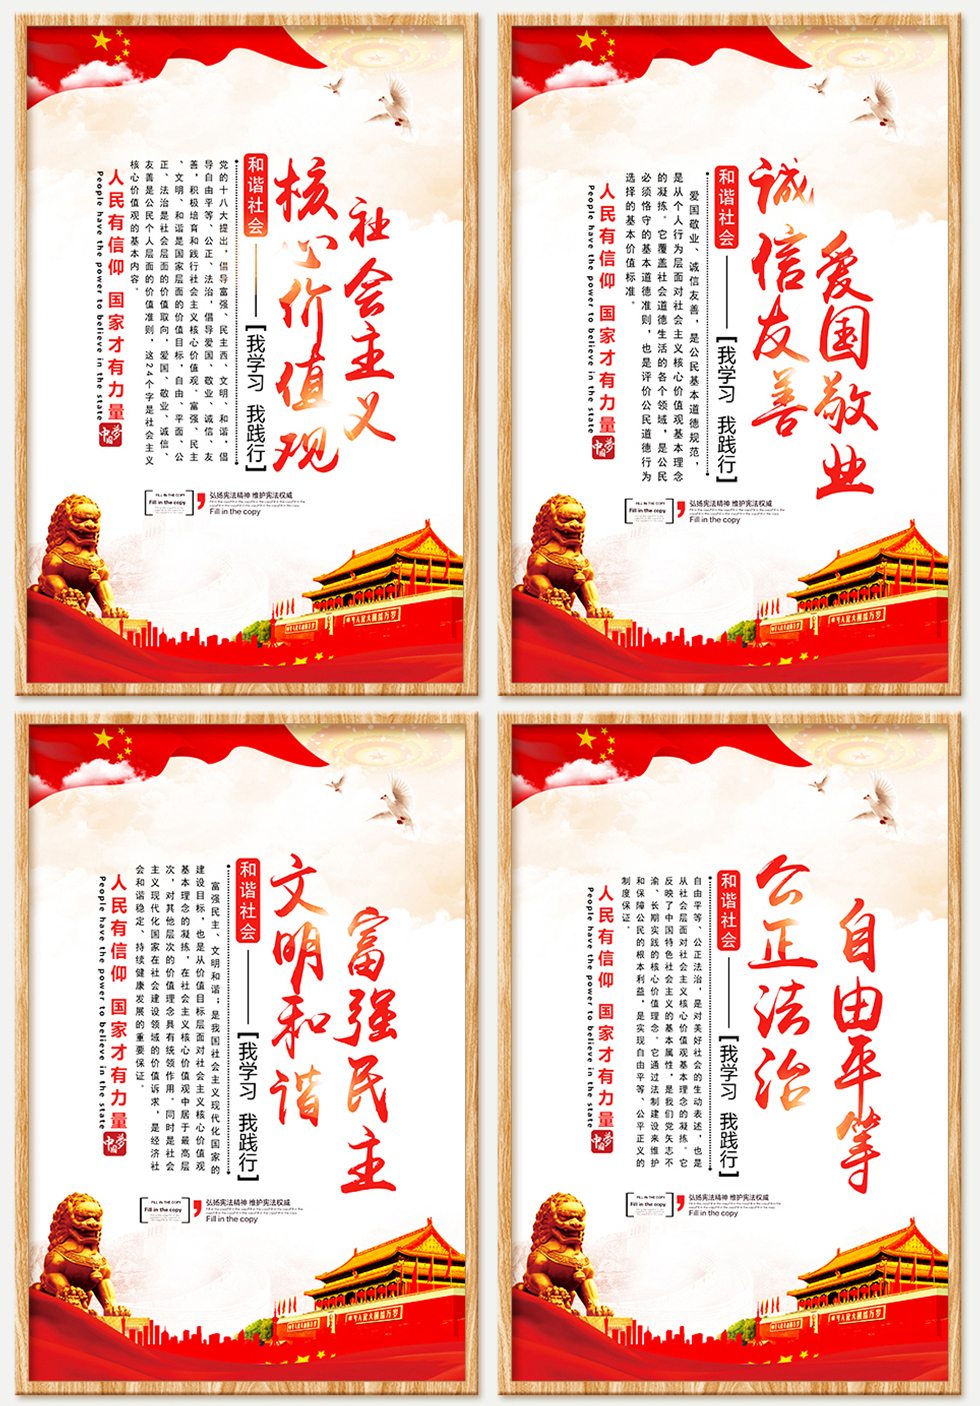 社会主义
核心价值观
和谐社会
[我学习 我践行]
党的十八大提出，倡导富强、民主西、文明、和谐，倡
导自由平等、公正、法治，倡导爱国、敬业、诚信、友
善，积极培育和践行社会主义核心价值观。富强、民主
、文明、和谐是国家层面的价值目标，自由、平面、公
正、法治是社会层面的价值取向，爱国、敬业、诚信、
友善是公民个人层面的价值准则，这24个字是社会主义
核心价值观的基本内容。
人民有信仰 国家才有力量
People have the power to believe in the state
中国梦
FILL IN THE COPY
Fill in the copy
弘扬宪法精神 维护宪法权威
Fill in the copy
爱国敬业
诚信友善
和谐社会
[我学习 我践行]
爱国敬业、诚信友善，是公民基本道德规范，
是从个人行为层面对社会主义核心价值观基本理念
的凝练。它覆盖社会道德生活的各个领域，是公民
必须恪守的基本道德准则，也是评价公民道德行为
选择的基本价值标准。
人民有信仰 国家才有力量
People have the power to believe in the state
中国梦
FILL IN THE COPY
Fill in the copy
弘扬宪法精神 维护宪法权威
Fill in the copy
富强民主
文明和谐
和谐社会
[我学习 我践行]
富强民主、文明和谐；是我国社会主义现代化国家的
建设目标，也是从价值目标层面对社会主义核心价值观
基本理念的凝炼，在社会主义核心价值观中居于最高层
次，对其他层次的价值理念具有统领作用。同时是社会
主义现代化国家在社会建设领域的价值诉求，是经济社
会和谐稳定、持续健康发展的重要保证。
人民有信仰 国家才有力量
People have the power to believe in the state
中国梦
FILL IN THE COPY
Fill in the copy
弘扬宪法精神 维护宪法权威
Fill in the copy
自由平等
公正法治
和谐社会
[我学习 我践行]
自由平等、公正法治，是对美好社会的生动表述，也是
从社会层面对社会主义核心价值观基本理念的凝练。它
反映了中国特色社会主义的基本属性，是我们党矢志不
渝、长期实践的核心价值理念。它通过法制建设来维护
和保障公民的根本利益，是实现自由平等、公平正义的
制度保证。
人民有信仰 国家才有力量
People have the power to believe in the state
中国梦
FILL IN THE COPY
Fill in the copy
弘扬宪法精神 维护宪法权威
Fill in the copy